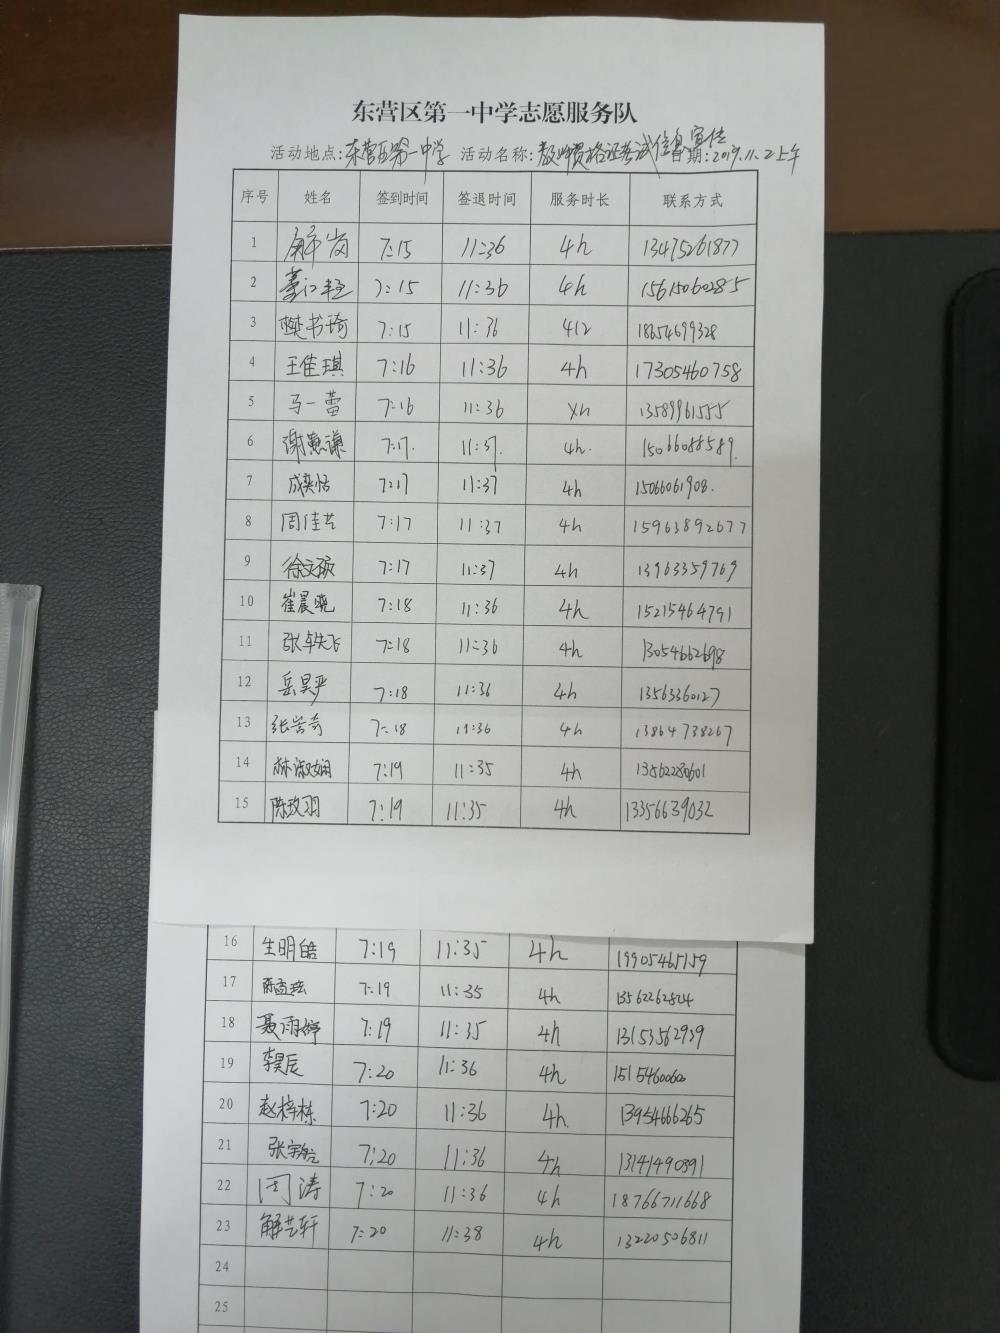 东营区第一中学志愿服务队
活动地点:东营区第一中学 活动名称:教师资格证考试信息宣传 日期:2019.11.2上午
序号 姓名 签到时间 签退时间 服务时长 联系方式
1 解岗 7:15 11:36 4h 13475261877
2 7:15 11:36 4h 15615060285
3 樊书琦 7:15 11:36 4h 18654699328
4 王佳琪 7:16 11:36 4h 17305460758
5 马一蕾 7:16 11:36 4h 13589961555
6 谢惠谦 7:17. 11:37. 4h. 15066088589.
7 成奕恬 7:17 11:37 4h 15066061908.
8 周佳艺 7:17 11:37 4h 15963892677
9 徐文硕 7:17 11:37 4h 13963359769
10 崔晨晓 7:18 11:36 4h 15215464791
11 张轶飞 7:18 11:36 4h 13054662698
12 岳昊 7:18 11:36 4h 13563360127
13 张 7:18 11:36 4h 13864738267
14 林淑娴 7:19 11:35 4h 13562280601
15 陈玫羽 7:19 11:35 4h 13356639032
16 生明皓 7:19 11:35 4h 19905465159
17 7:19 11:35 4h 13562262824
18 聂雨婷 7:19 11:35 4h 13153562939
19 李昊辰 7:20 11:36 4h
20 赵梓栋 7:20 11:36 4h 13954666265
21 张 7:20 11:36 4h 13141490391
22 周涛 7:20 11:36 4h 18766711668
23 解艺轩 7:20 11:38 4h 13220506811
24
25